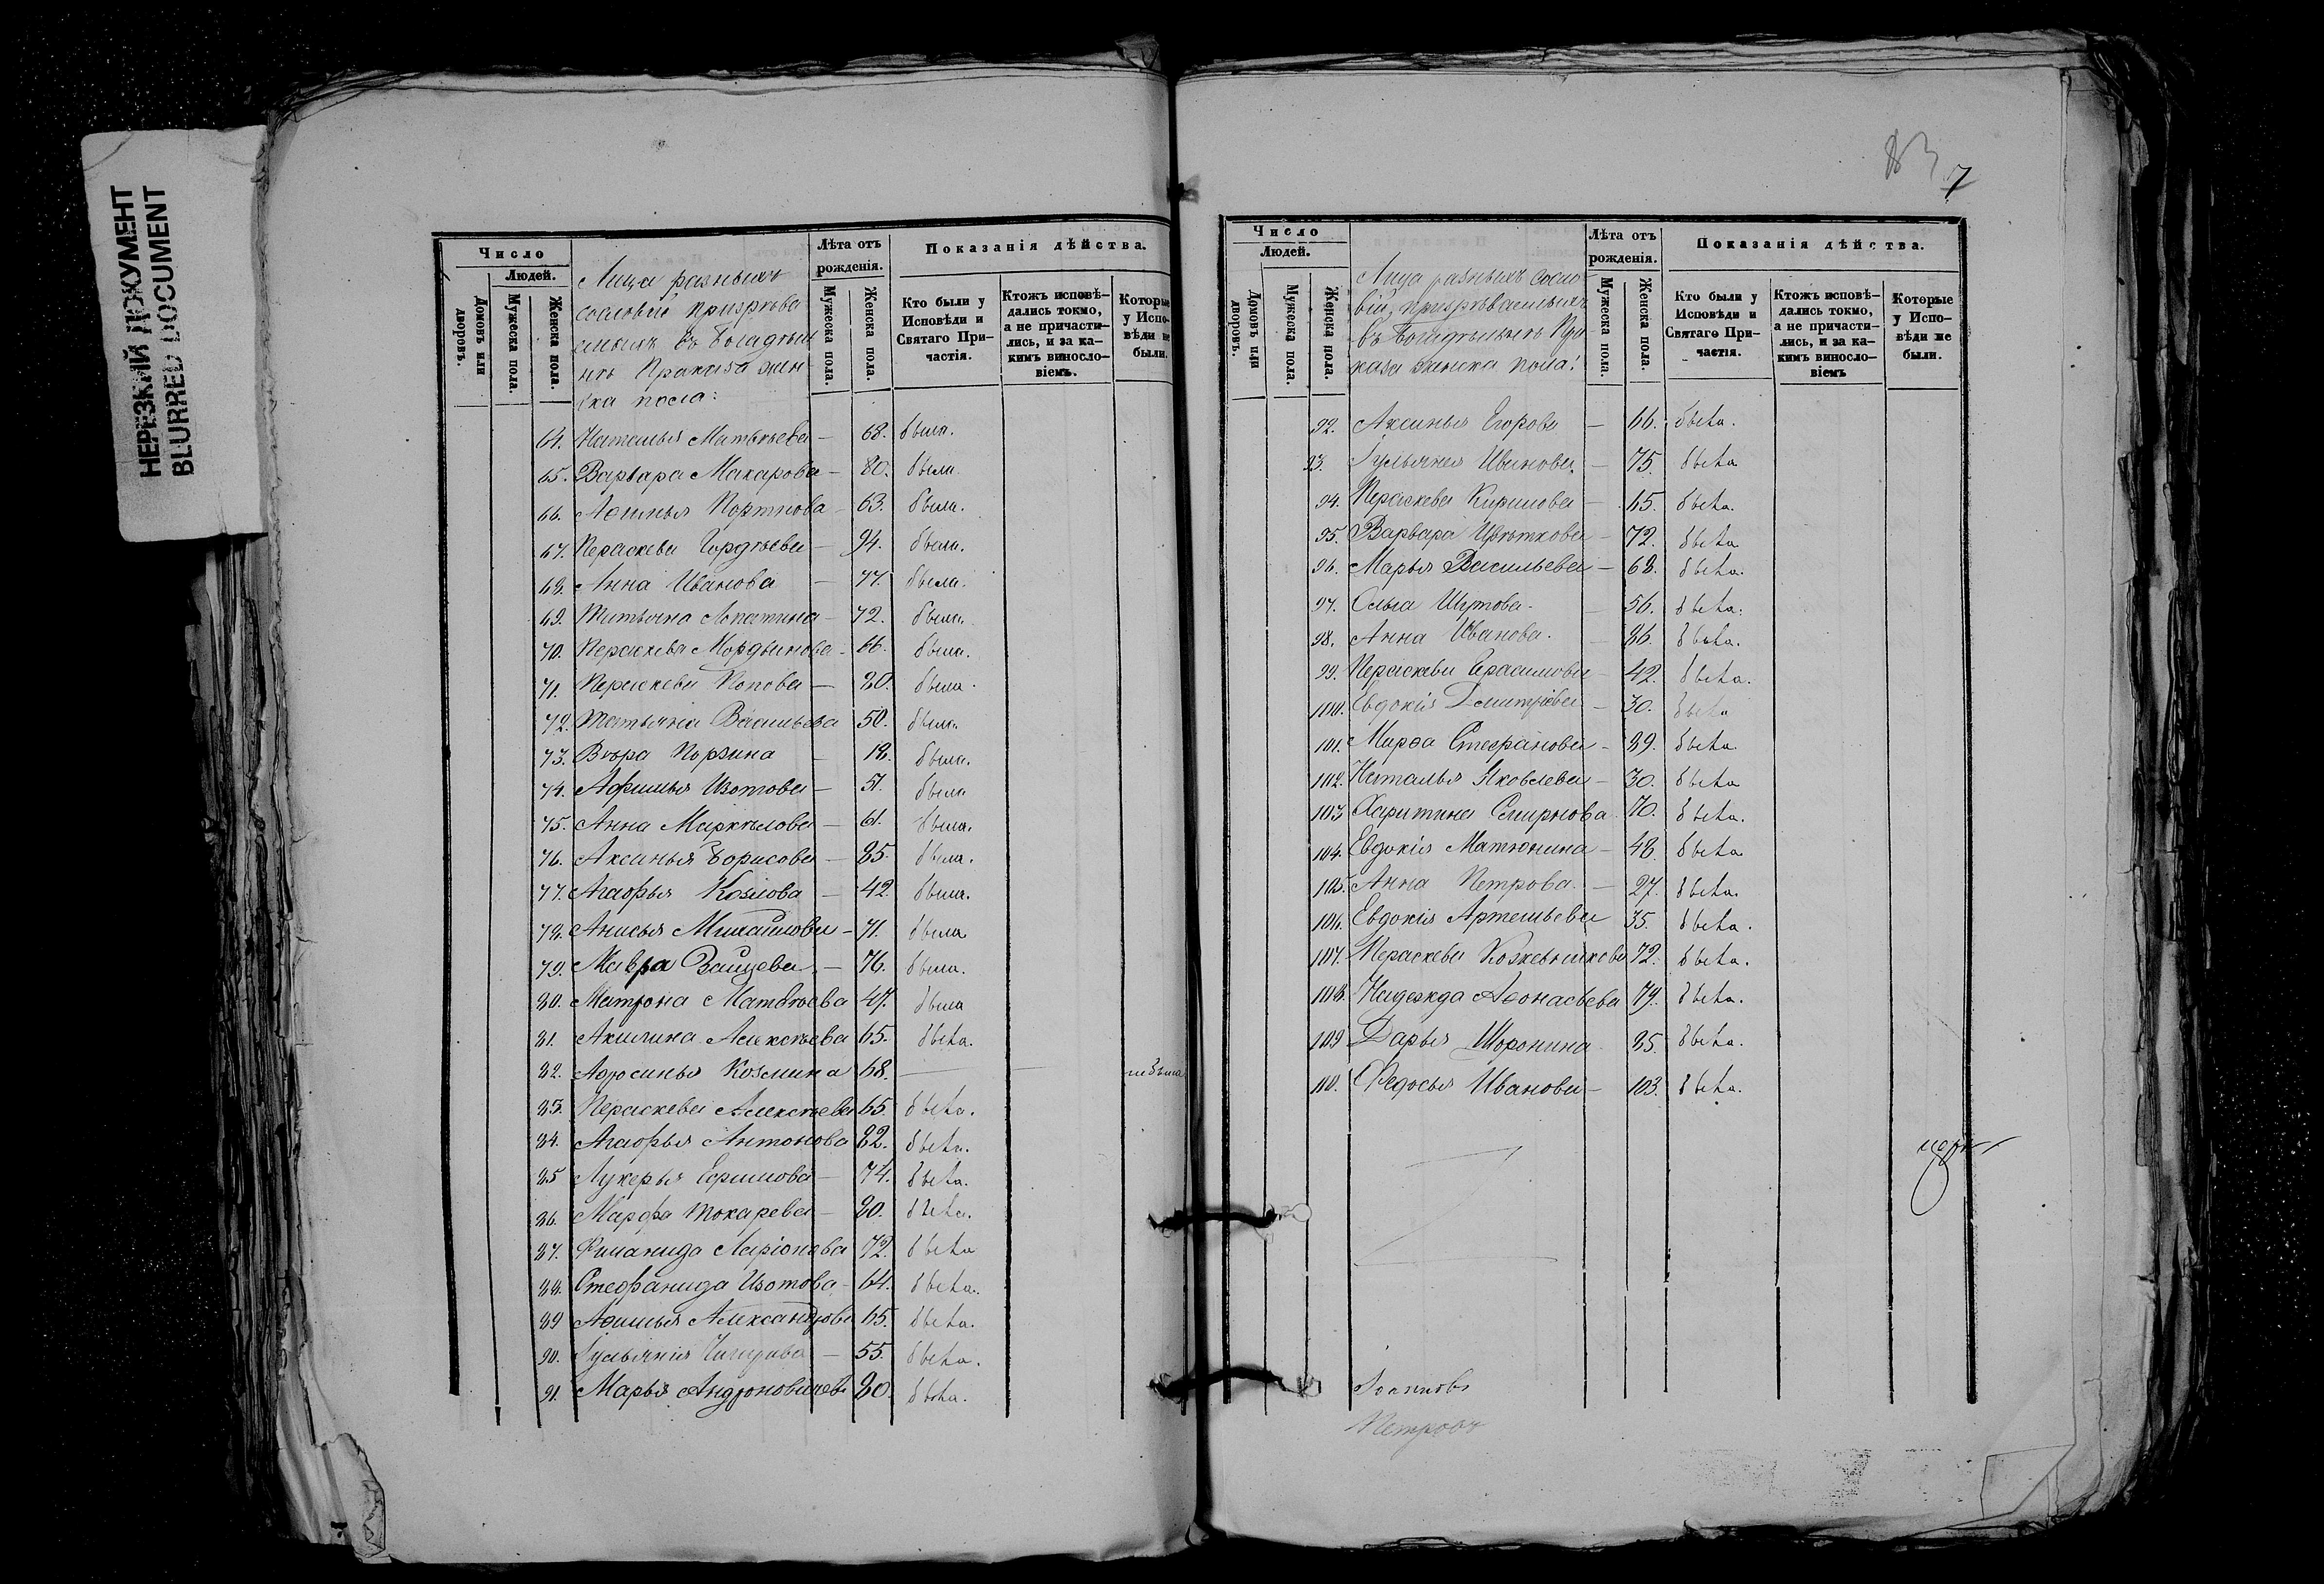 НЕРЕЗКИЙ ДОКУМЕНТ
BLURRED DOCUMENT
Число
Людей.
Домовъ или дворовъ.
Мужеска пола.
Женска пола.
Лица разныхъ
сословій призрѣва
емыхъ въ богадѣль
нѣ Приказа жен-
ска пола:
Лѣта отъ рожденія.
Мужеска пола.
Женска пола.
Показанія дѣйства.
Кто были у Исповѣди и Святаго Причастія.
Ктожъ исповѣдались токмо, а не причастились, и за какимъ винословіемъ.
Которые у Исповѣди не были.
64. Наталья Матвѣева — 68. была.
65. Варвара Макарова — 80. была.
66. Аѳимья Портнова — 63. была.
67. Пераскева Гордѣева — 94. была.
68. Анна Иванова — 77. была.
69. Татьяна Лопатина — 72. была.
70. Пераскева Мордвинова — 66. была.
71. Пераскева Попова — 80. была.
72. Татьяна Васильева 50. была.
73. Вѣра Порзина — 18. была.
74. Афимья Изотова — 51. была
75. Анна Маркѣлова — 61. была.
76. Аксинья Борисова — 85. была.
77. Агафья Козлова — 42. была.
78. Анисья Михайлова — 71. была
79. Мавра Зайцева — 76. была.
80. Матрона Матвѣева 47. была
81. Акилина Алексѣева 65. была.
82. Аѳросинья Козмина 68. — не была
83. Пераскева Алексѣева 65. была.
84. Агафья Антонова 82. была.
85 Лукерья Ефимова — 74. была.
86. Марфа Токарева — 80. была.
87. Филанида Ларіонова 72. была
88. Стефанида Изотова — 64. была.
89 Аѳимья Александрова 65. была.
90. Іульянія 55. была.
91. Марья 80. была.
83 7
Число
Людей.
Домовъ или дворовъ.
Мужеска пола.
Женска пола.
Лица разныхъ сосло
вій, призрѣваемыхъ
въ Богадѣльнѣ При
каза женска пола:
Лѣта отъ рожденія.
Мужеска пола.
Женска пола.
Показанія дѣйства.
Кто были у Исповѣди и Святаго Причастія.
Ктожъ исповѣдались токмо, а не причастились, и за какимъ винословіемъ
Которые у Исповѣди не были.
92. Аксинья Егорова — 66. была.
93. Іульянея Иванова. — 75. была
94. Пераскева Кирилова — 65. была.
95. Варвара Цвѣткова — 72. была
96. Марья Васильева — 68. была.
97. Ольга Шутова. — 56. была.
98. Анна Иванова. — 86. была.
99. Пераскева Герасимова — 42. была.
100. Евдокія Дмитріева — 30. была
101. Марѳа Стефанова — 89. была.
102. Наталья Яковлева — 30. была
103 Харитина Смирнова 70. была.
104. Евдокія Матюнина — 48. была
105. Анна Петрова. — 27. была.
106. Евдокія Артемьева 35. была.
107. Пераскева Кожевникова 72. была.
108. Надежда Аѳонасьева 79. была.
109 Дарья Шоронина 85. была.
110. Ѳедосья Иванова — 103. была.
Петровъ